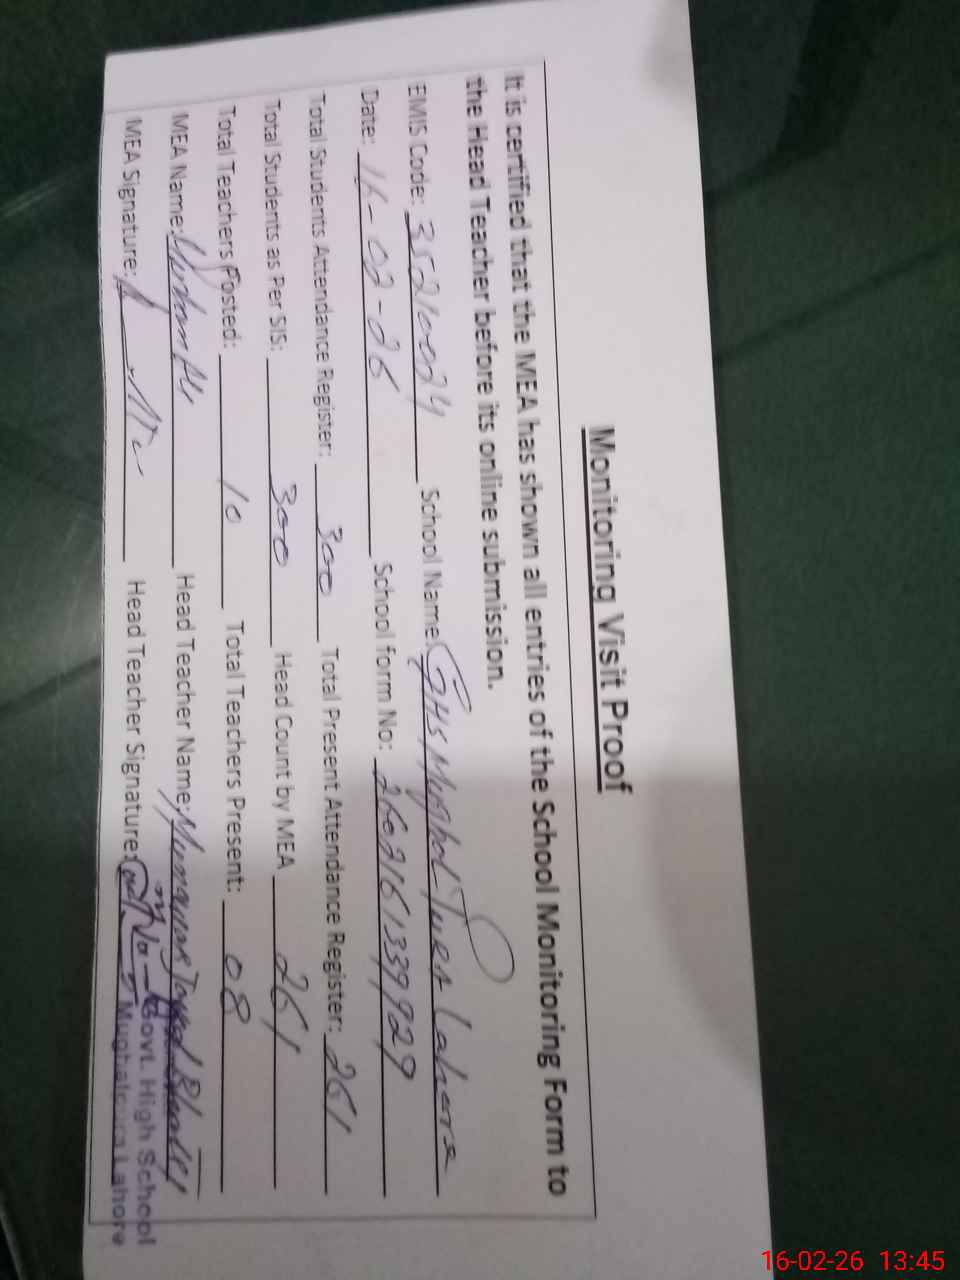 Monitoring Visit Proof
It is certified that the MEA has shown all entries of the School Monitoring Form to
the Head Teacher before its online submission.
EMIS Code: 35210024 School Name: GHS Mughal Pura Lahore
Date: 16-02-26 School form No: 2602161339929
Total Students Attendance Register: 300 Total Present Attendance Register: 261
Total Students as Per SIS: 300 Head Count by MEA 261
Total Teachers Posted: 10 Total Teachers Present: 08
MEA Name: Head Teacher Name:
MEA Signature: Head Teacher Signature:
Govt. High School
Mughalpura Lahore
16-02-26 13:45